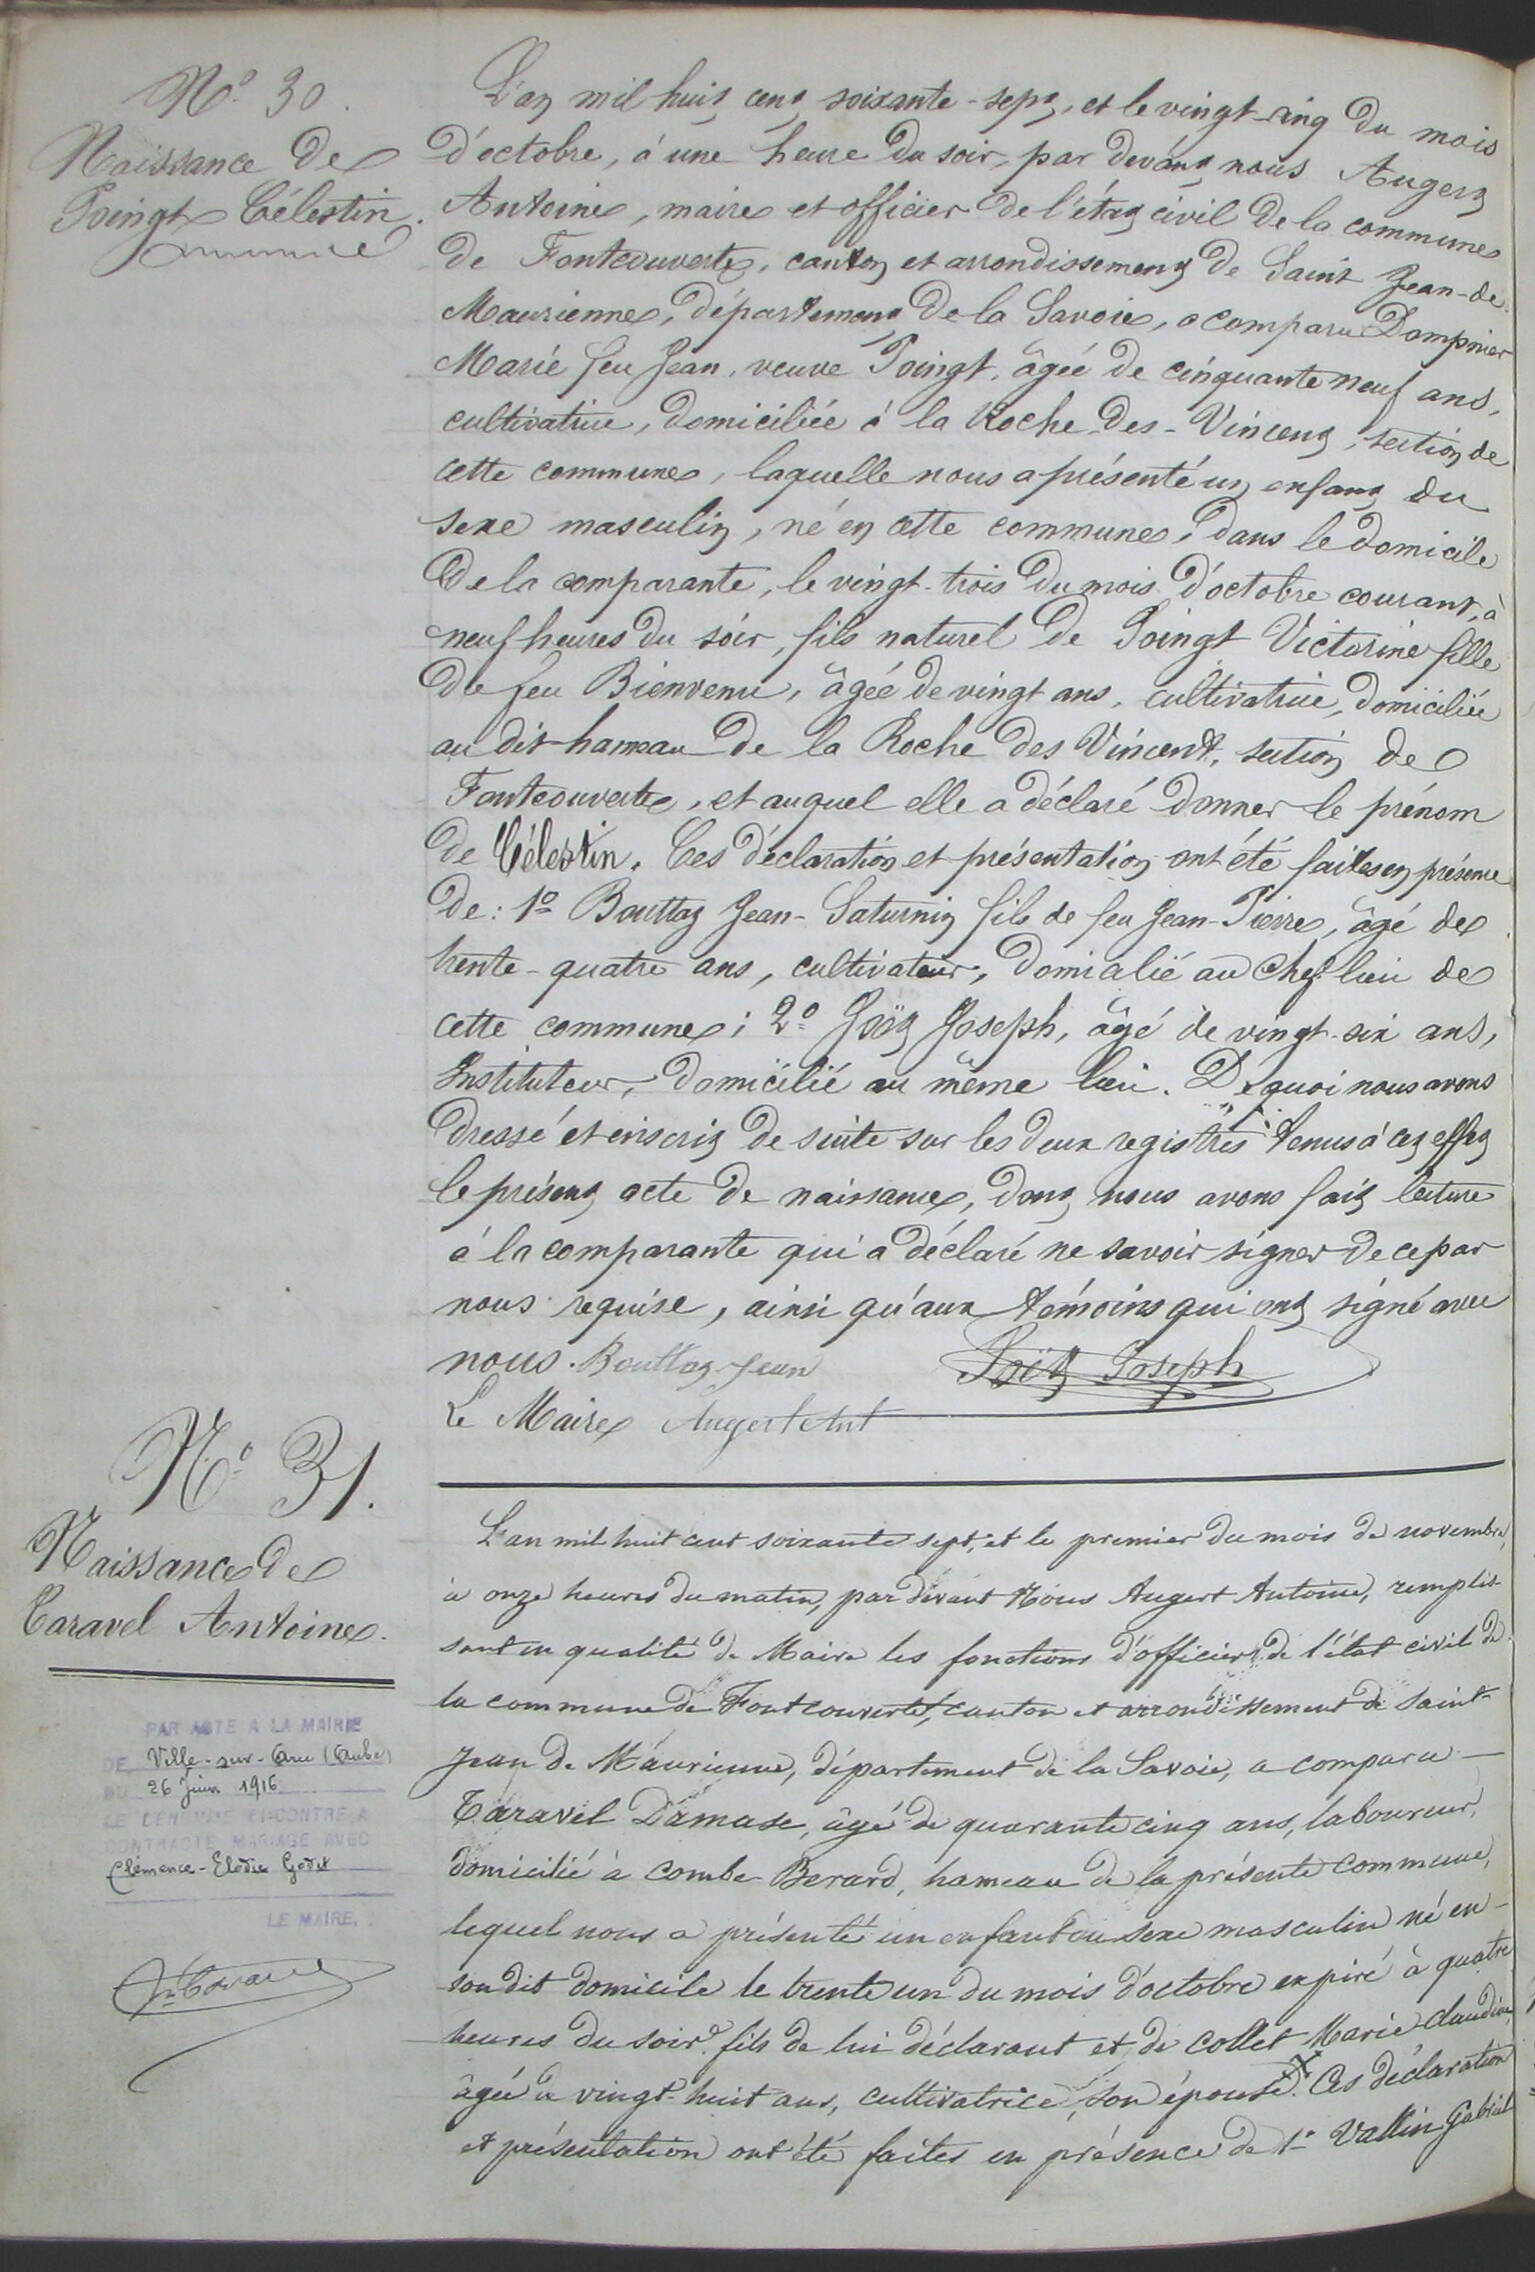 N° 30.
Naissance de
Poingt Célestin.
L'an mil huit cent soixante-sept, et le vingt-cinq du mois
d'octobre, à une heure du soir, par devant nous Augert
Antoine, maire et officier de l'état civil de la commune
de Fontcouverte, canton et arrondissement de Saint Jean-de-
Maurienne, département de la Savoie, a comparu Dompnier
Marie feu Jean, veuve Poingt, âgée de cinquante neuf ans,
cultivatrice, domiciliée à la Roche-des-Vincent, section de
cette commune, laquelle nous a présenté un enfant du
sexe masculin, né en cette commune, dans le domicile
de la comparante, le vingt-trois du mois d'octobre courant, à
neuf heures du soir, fils naturel de Poingt Victorine fille
de feu Bienvenu, âgée de vingt ans, cultivatrice, domiciliée
au dit hameau de la Roche des Vincent, section de
Fontcouverte, et auquel elle a déclaré donner le prénom
de Célestin. Ces déclaration et présentation ont été faites en présence
de: 1° Bouttaz Jean-Saturnin fils de feu Jean-Pierre, âgé de
trente-quatre ans, cultivateur, domicilié au Chef lieu de
cette commune; 2° Joseph, âgé de vingt-six ans,
Instituteur, domicilié au même lieu. De quoi nous avons
dressé et inscrit de suite sur les deux registres tenus à cet effet
le présent acte de naissance, dont nous avons fait lecture
à la comparante qui a déclaré ne savoir signer de ce par
nous requise, ainsi qu'aux témoins qui ont signé avec
nous. Bouttaz Jean Joseph
Le Maire Augert Ant
N° 31.
Naissance de
Taravel Antoine.
PAR ACTE A LA MAIRIE
DE Ville-sur-Arce (Aube)
DU 26 Juin 1916
LE DENOMME CI-CONTRE A
CONTRACTE MARIAGE AVEC
Clémence-Elodie Godet
LE MAIRE,
L'an mil huit cent soixante sept, et le premier du mois de novembre,
à onze heures du matin, par devant Nous Augert Antoine, remplis-
sant en qualité de Maire les fonctions d'officier de l'état civil de
la commune de Fontcouverte, canton et arrondissement de Saint-
Jean de Maurienne, département de la Savoie, a comparu —
Taravel Damase, âgé de quarante cinq ans, laboureur,
domicilié à Combe Berard, hameau de la présente commune,
lequel nous a présenté un enfant du sexe masculin né en-
son dit domicile le trente un du mois d'octobre expiré à quatre
heures du soir, fils de lui déclarant et de Collet Marie Claudine,
âgée de vingt-huit ans, cultivatrice, son épouse. X Ces déclaration
et présentation ont été faites en présence de 1° Vallin Gabriel